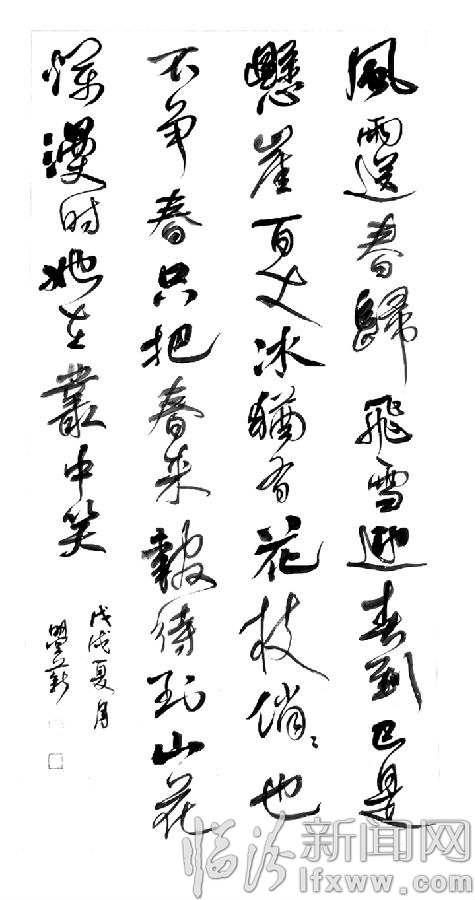 風雨送春歸飛雪迎春到已是
懸崖百丈冰猶有花枝俏〻也
不争春只把春来報待到山花
爛漫时她在叢中笑
戊戌夏月
临汾新闻网
lfxww.com